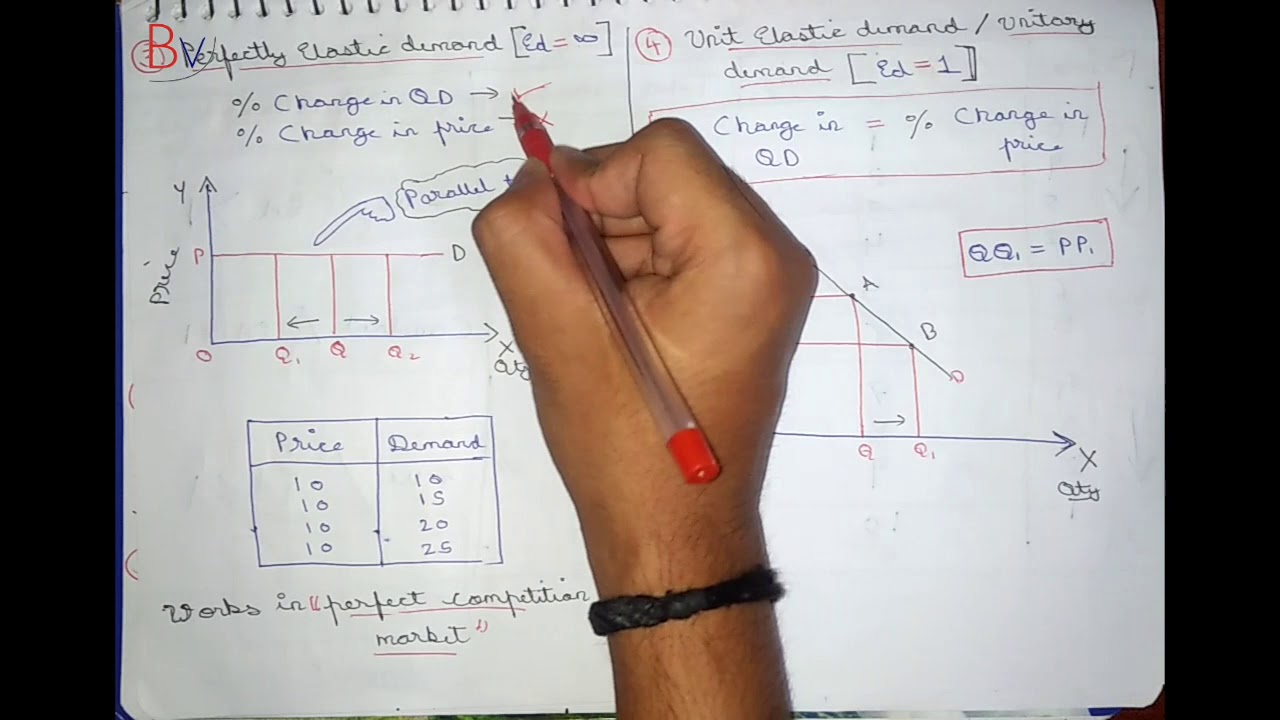 BV
③ Perfectly Elastic demand [Ed = ∞]
% Change in QD →
% Change in price → ×
Parallel
Y
Price
P
D
O
Q₁
Q
Q₂
X
Qty
Price Demand
10 10
10 15
10 20
10 25
Works in "perfect competition
market"
④ Unit Elastic demand / Unitary
demand [Ed = 1]
Change in = % Change in
QD price
QQ₁ = PP₁
A
B
D
Q
Q₁
X
Qty